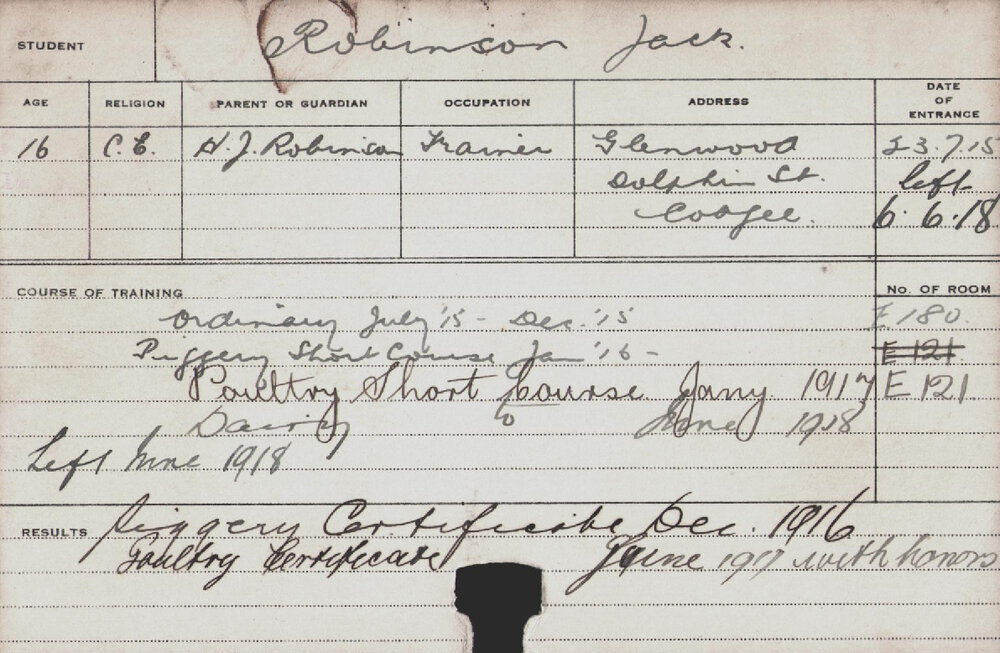 STUDENT Robinson Jack.
AGE RELIGION PARENT OR GUARDIAN OCCUPATION ADDRESS DATE OF ENTRANCE
16 C.E. H. J. Robinson Trainer Glenwood 23.7.15
Dolphin St. left
Coogee. 6.6.18
COURSE OF TRAINING No. OF ROOM
Ordinary July '15 - Dec. '15 E 180.
Piggery Short Course Jan '16 - E 121
Poultry Short Course Jany 1917 E 121
Dairy to June 1918
Left June 1918
RESULTS Piggery Certificate Dec. 1916
Poultry Certificate June 1917 with honors